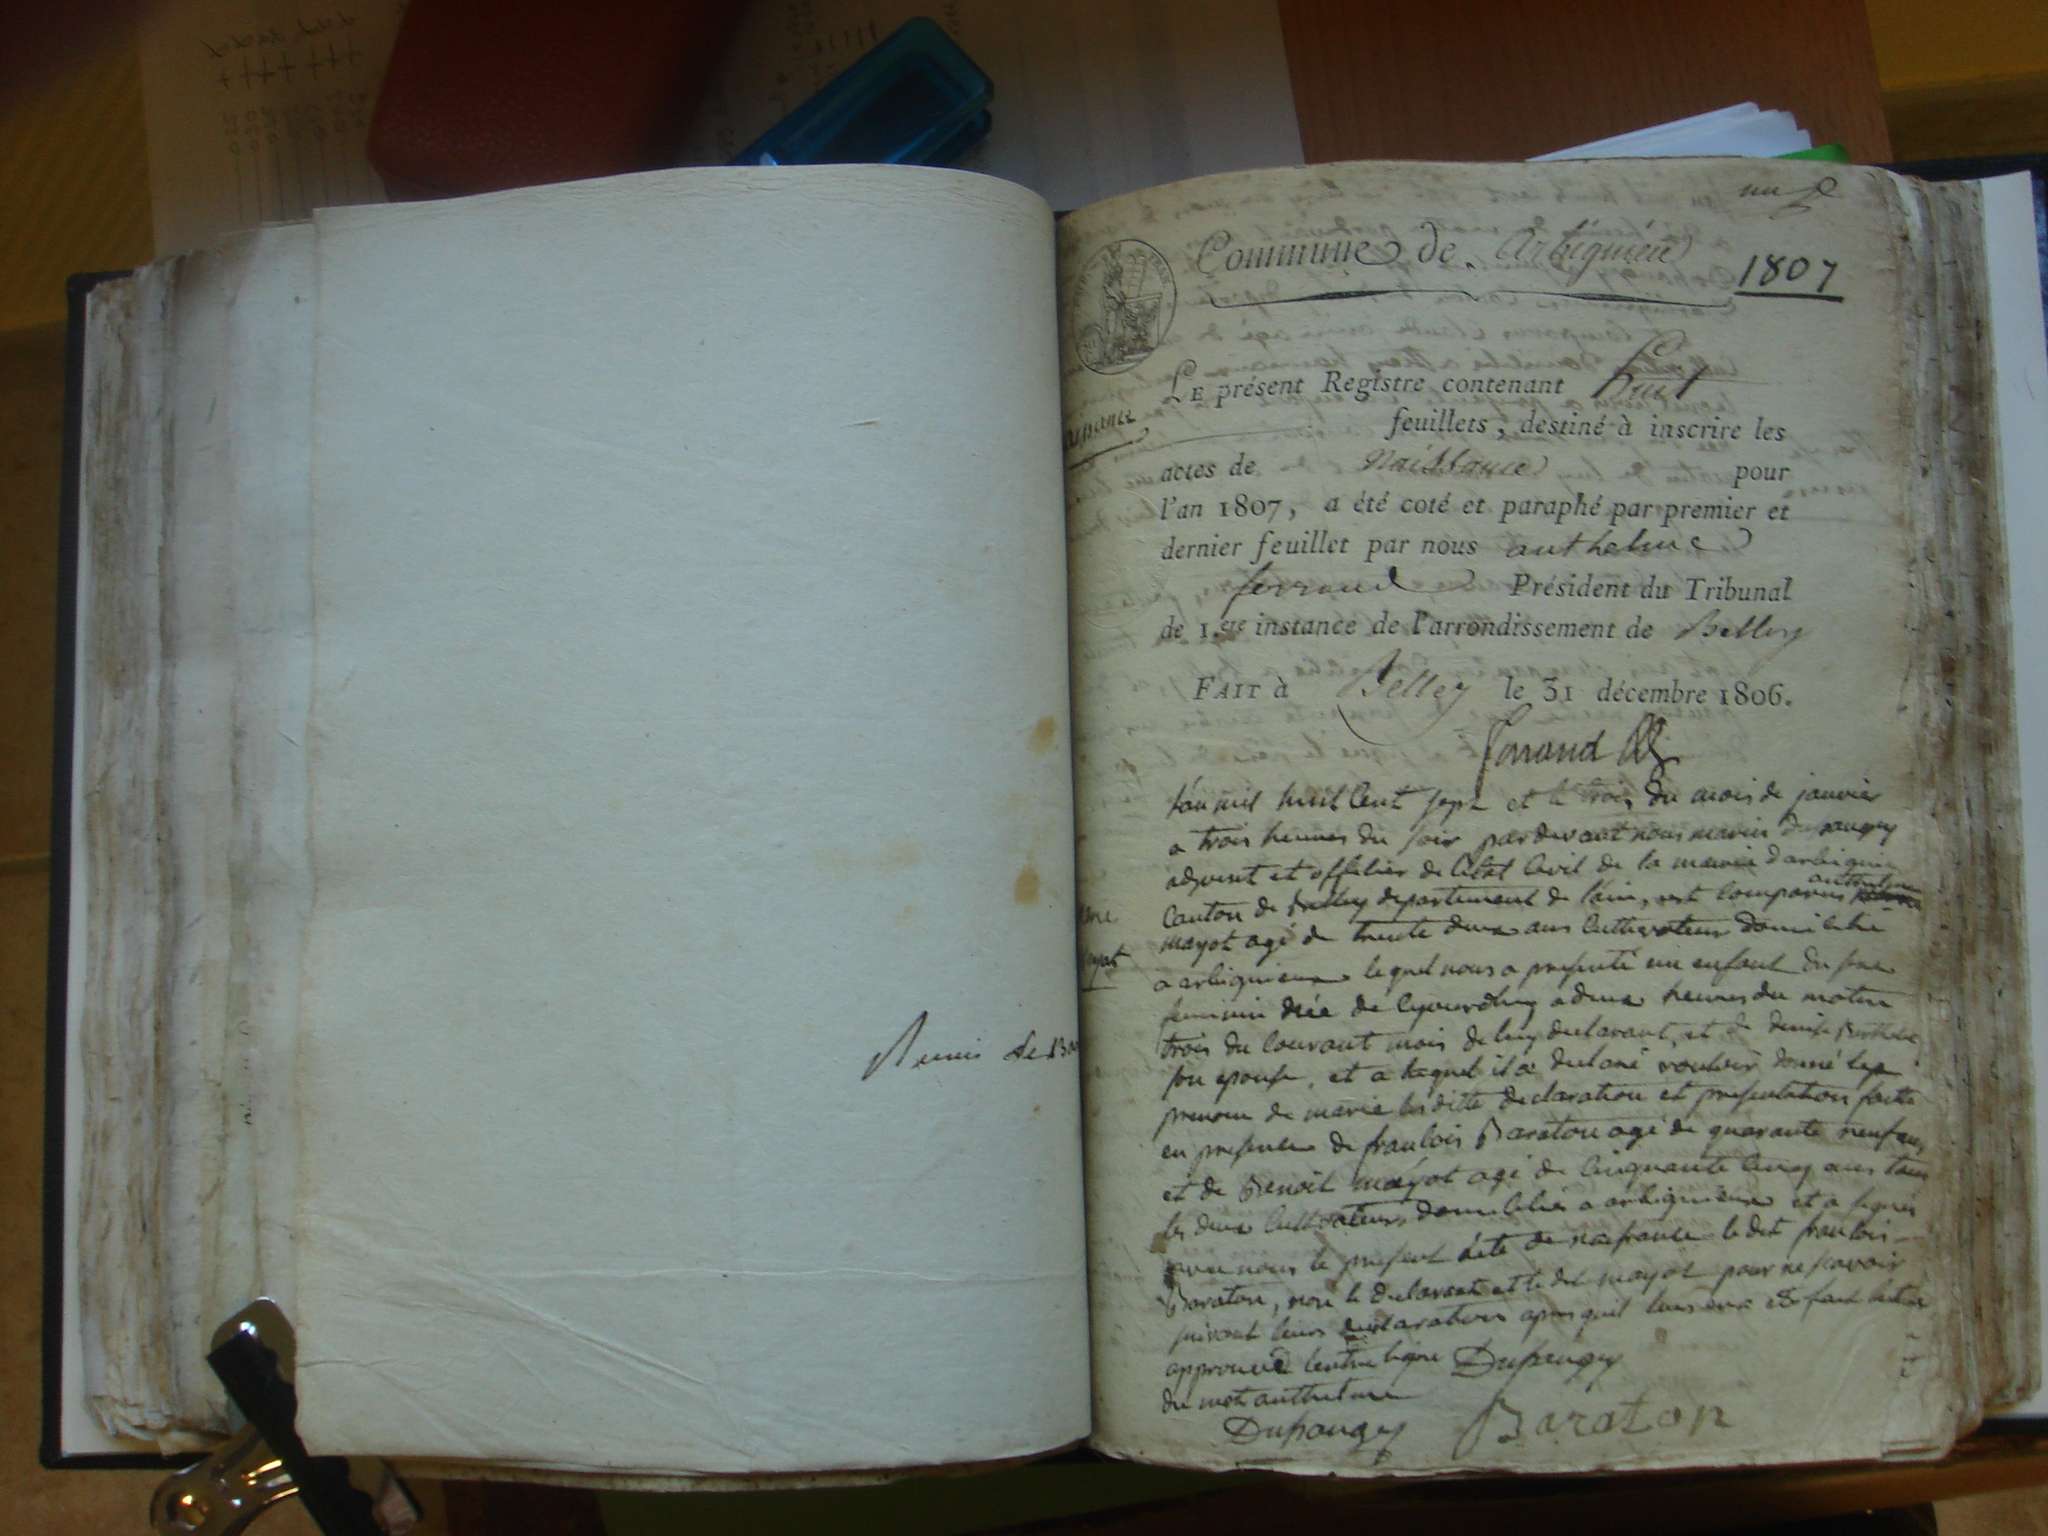 Commune de Arbignieu
1807
LE présent Registre contenant huit
feuillets, destiné à inscrire les
actes de Naissance pour
l'an 1807, a été coté et paraphé par premier et
dernier feuillet par nous anthelme
ferrand Président du Tribunal
de 1.ere instance de l'arrondissement de Belley
FAIT à Belley le 31 décembre 1806.
Ferrand
L'an mil huit cent sept et le trois du mois de janvier
a trois heures du soir pardevant nous marin Dupaugey
adjoint et officier de l'état civil de la mairie d'arbignieu
anthelme
canton de Belley departement de l'ain, est comparus
mayot agé de trente deux ans cultivateur domicilié
a arbignieux lequel nous a presenté un enfant du sexe
feminin née de a deux heures du matin
trois du courant mois de luy declarant, et de denise
son epouse, et a laquel il a declaré vouloir donné les
prenom de marie les ditte declaration et presentation faitte
en presence de francois Baraton agé de quarante neuf ans
et de Benoit mayot agé de cinquante cinq ans tous
les deux cultivateurs domiciliés a arbignieux et a signés
avec nous le present acte de naissance le dit francois
Baraton, non le declarant et le dit mayot pour ne scavoir
suivant leurs declarations apres quil leurs en a été fait lecture
approuvé l'entre ligne Dupaugey
du mot anthelme
Dupaugey Baraton